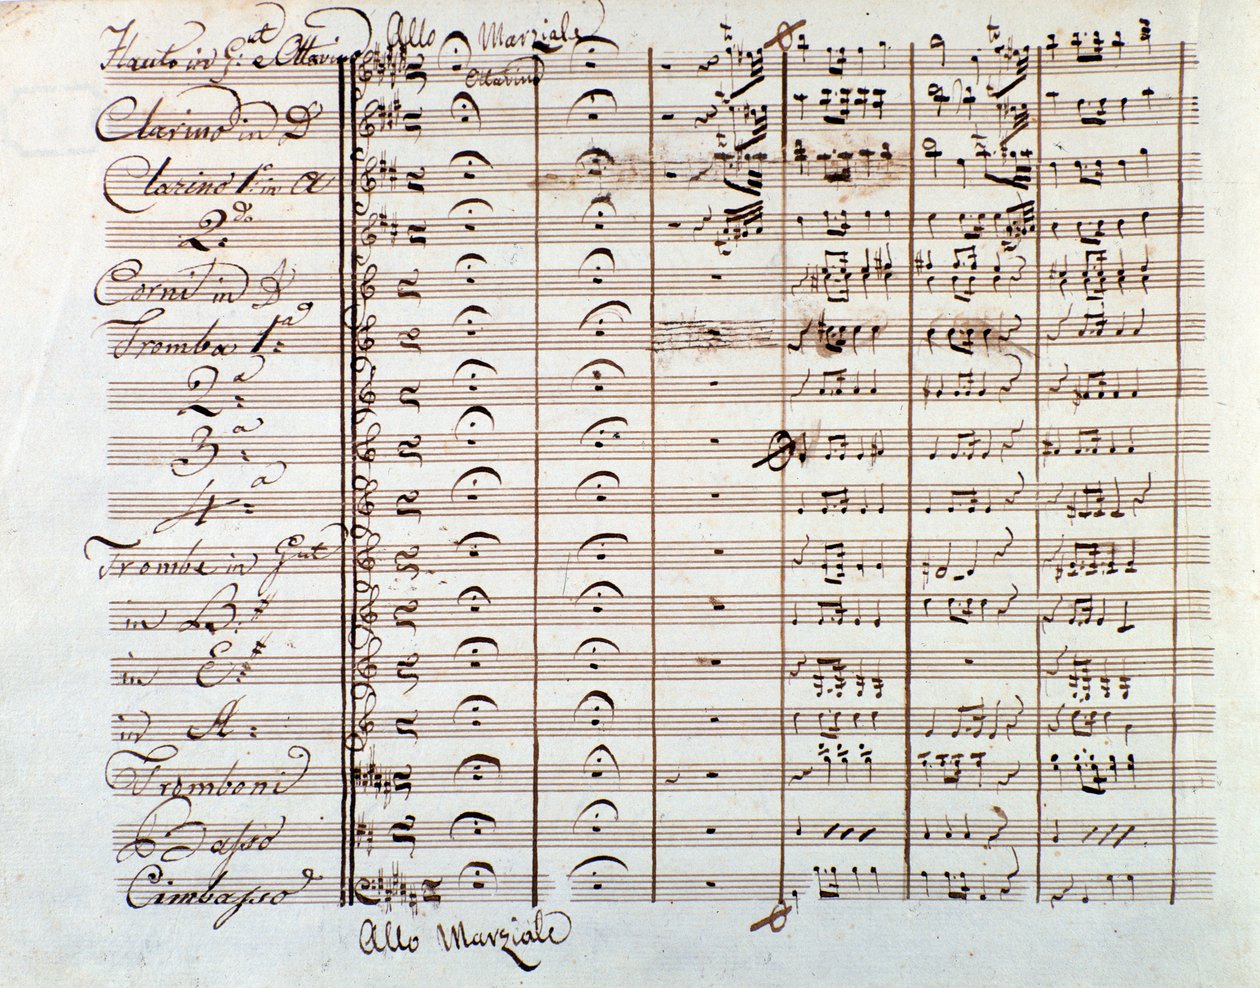 Allo Marziale
Flauto in G: ut e Ottavino
Ottavino
Clarino in D
Clarino 1º in A
2:do
Corni in D
Tromba 1:a
2:a
3:a
4:a
Trombe in G ut
in B:#
in E:#
in A:
Tromboni
Basso
Cimbasso
Allo Marziale